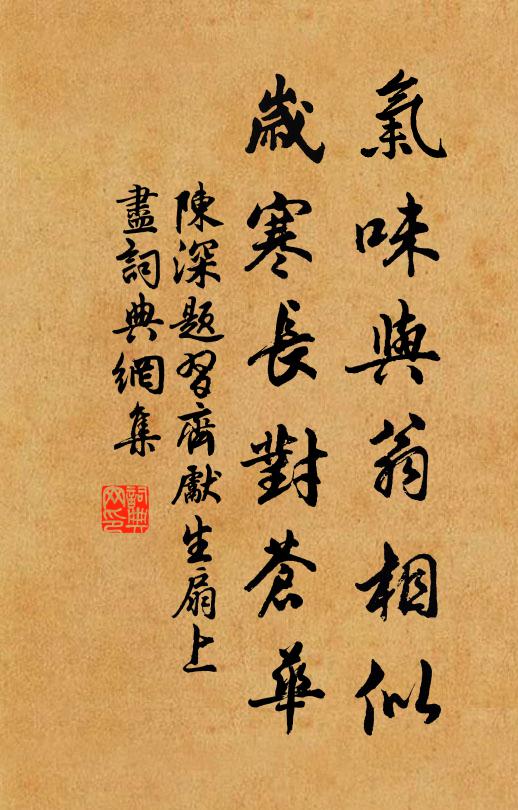 氣味與翁相似
歲寒長對蒼華
陳深題習齊獻生扇上
盡詞典網集
詞典
网印